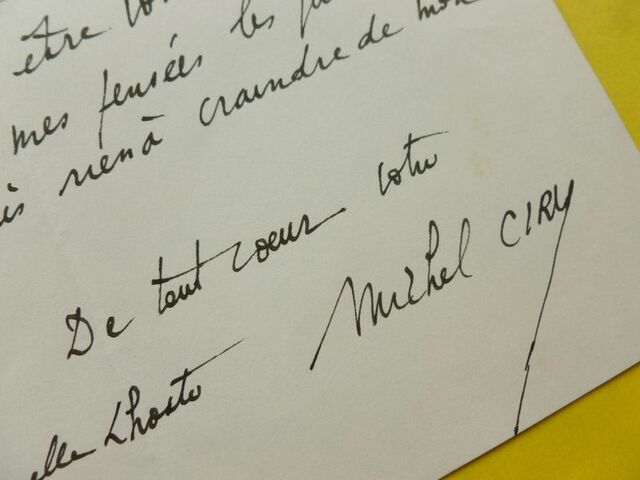 être
mes pensées les
rien à craindre de mon
De tout coeur votre
Michel CIRY
elle Lhoste